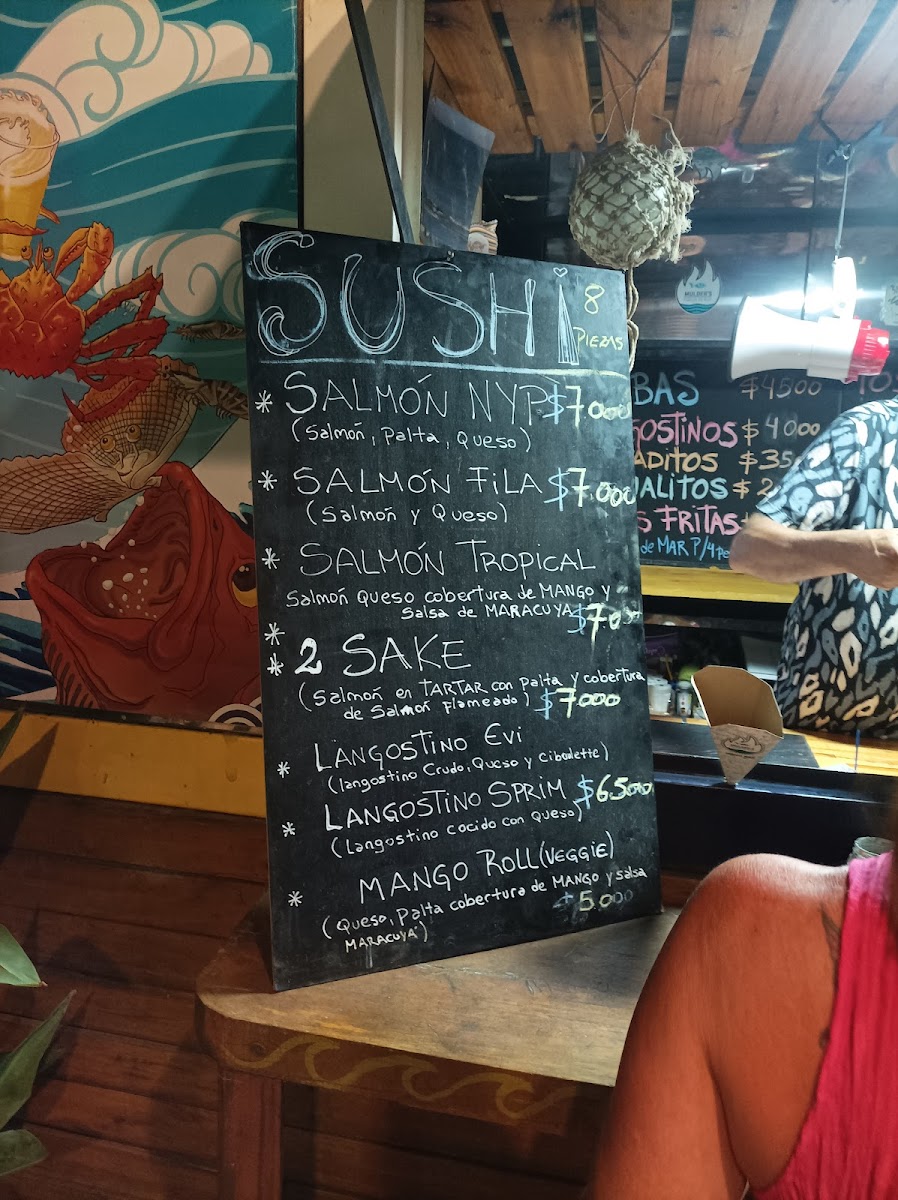 SUSHi 8
PIEZAS
* SALMÓN NYP $7.000
(Salmón, Palta, Queso)
* SALMÓN FiLA $7.000
(Salmón y Queso)
* SALMÓN TROPICAL
Salmón Queso cobertura de MANGO y
Salsa de MARACUYA $7.000
*
* 2 SAKE
(Salmón en TARTAR con Palta y cobertura
de Salmón flameado) $7000
* LANGOSTINO EVi
(langostino Crudo, Queso y Ciboulette)
* LANGOSTINO SPRIM $6500
(Langostino cocido con Queso)
* MANGO ROLL (VEGGIE)
(Queso, Palta cobertura de MANGO y salsa
MARACUYÁ) $5.000
MULDER'S
BAS $4500
OSTINOS $4000
ADITOS $35
ALITOS $2
S FRITAS
de MAR P/4Pe